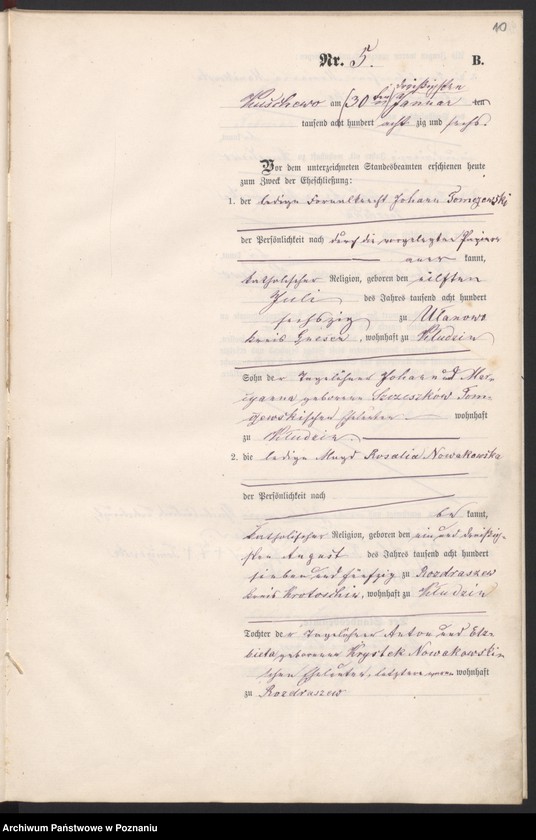 10
Nr. 5. B.
dreißigsten
Kuschewo am (30 ten) Januar ten
tausend acht hundert acht zig und sechs.
Vor dem unterzeichneten Standesbeamten erschienen heute
zum Zweck der Eheschließung:
1. der ledige Fornalknecht Johann Tomczewski
der Persönlichkeit nach durch die vorgelegten Papiere
aner kannt,
katholischer Religion, geboren den eilften
Juli des Jahres tausend acht hundert
sechszig zu Ulanowo
Kreis Gnesen, wohnhaft zu Kludzin
Sohn der Tagelöhner Johann und Mar-
cyanna geborenen Tom-
czewskischen Eheleute wohnhaft
zu Kludzin.
2. die ledige Magd Rosalia Nowakowska
der Persönlichkeit nach
be kannt,
katholischer Religion, geboren den ein und dreißig-
sten August des Jahres tausend acht hundert
sieben und fünfzig zu Rozdraszew
Kreis Krotoschin, wohnhaft zu Kludzin
Tochter der Tagelöhner Anton und Elz-
bieta geborenen Krystek Nowakowski-
schen Eheleute, letztere wohnhaft
zu Rozdraszew
Archiwum Państwowe w Poznaniu